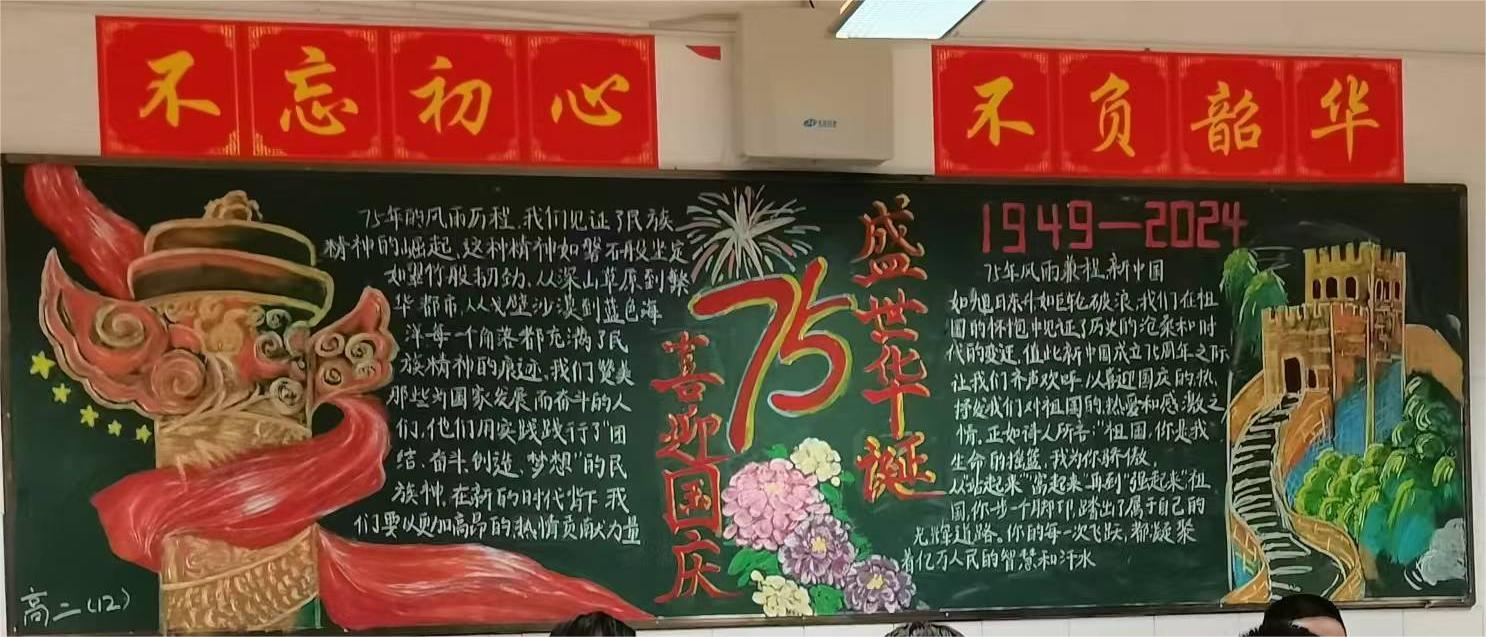 不忘初心
不负韶华
75年的风雨历程,我们见证了民族
精神的崛起,这种精神如磐石般坚定
如翠竹般韧劲,从深山草原到繁
华都市,从戈壁沙漠到蓝色海
洋每一个角落都充满了民
族精神的痕迹,我们赞美
那些为国家发展而奋斗的人
们,他们用实践践行了"团
结、奋斗、创造、梦想"的民
族神,在新的时代背下我
们要以更加高昂的热情贡献力量
高二(12)
喜迎国庆
75
盛世华诞
1949—2024
75年风雨兼程,新中国
如旭日东升如巨轮破浪,我们在祖
国的怀抱中见证了历史的沧桑和时
代的变迁,值此新中国成立75周年之际
让我们齐声欢呼,以喜迎国庆的热,
抒发我们对祖国的热爱和感激之
情。正如诗人所言:"祖国,你是我
生命的摇篮,我为你骄傲,
从"站起来""富起来"再到"强起来"祖
国,你一步一个脚印,踏出了属于自己的
光辉道路。你的每一次飞跃,都凝聚
着亿万人民的智慧和汗水